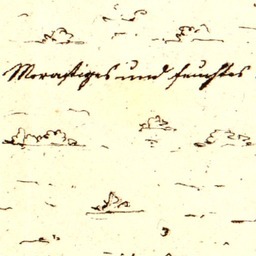 Morastiges und feuchtes